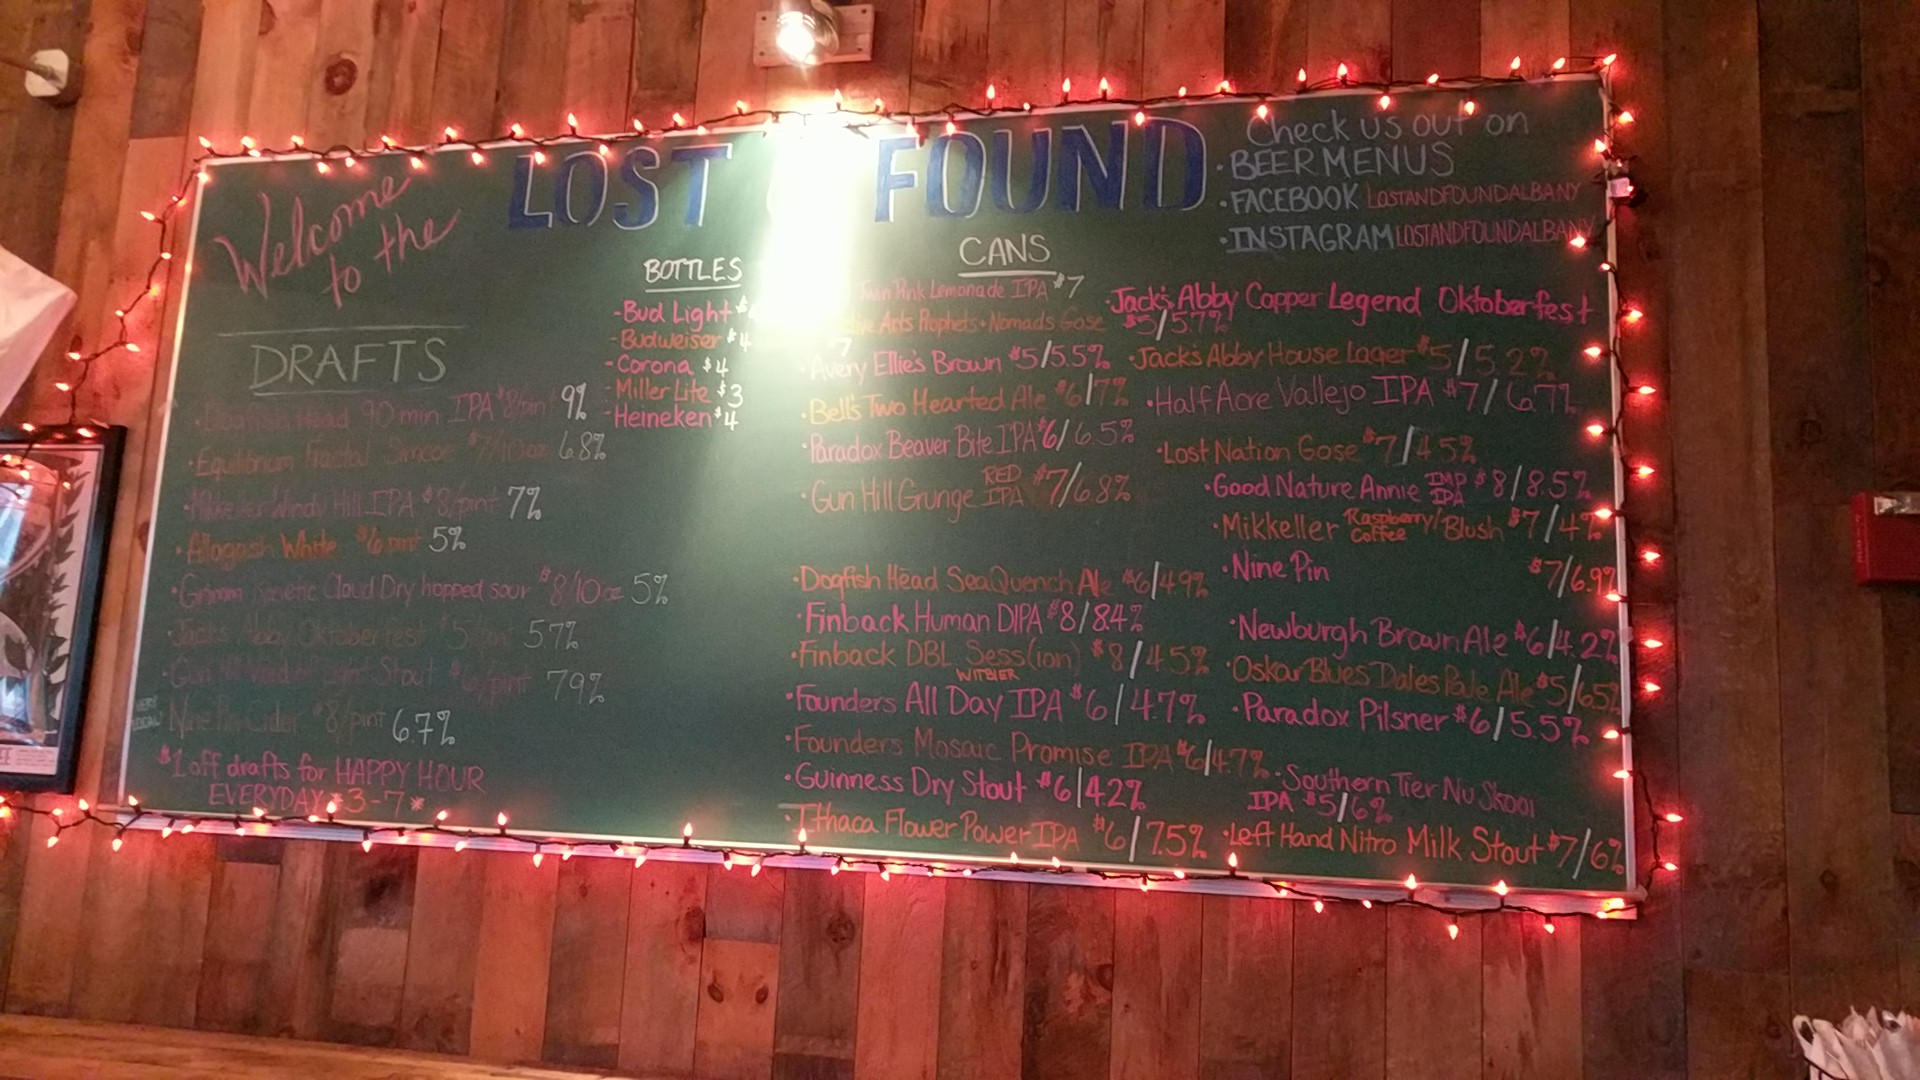 Welcome
to the
LOST FOUND
Check us out on
• BEER MENUS
• FACEBOOK LOSTANDFOUNDALBANY
• INSTAGRAM LOSTANDFOUNDALBANY
DRAFTS
Head 90 min IPA $8/pint 9%
• Equilibrium Fractal Simcoe $7/10oz 6.8%
Windy Hill IPA $8/pint 7%
• Allagash White $6 pint 5%
• Grimm Kinetic Cloud Dry hopped sour $8/10oz 5%
Jack's Abby Oktoberfest $5/pint 5.7%
Stout $6/pint 7.9%
VERY LOCAL!
Nine Pin Cider $8/pint 6.7%
$1 off drafts for HAPPY HOUR
EVERYDAY * 3-7 *
BOTTLES
- Bud Light $
- Budweiser $4
- Corona $4
- Miller Lite $3
- Heineken $4
CANS
Pink Lemonade IPA $7
Arts Prophets + Nomads Gose
7
• Avery Ellie's Brown $5/5.5%
• Bell's Two Hearted Ale $6/7%
• Paradox Beaver Bite IPA $6/6.5%
• Gun Hill Grunge RED IPA $7/6.8%
• Dogfish Head SeaQuench Ale $6/4.9%
• Finback Human DIPA $8/8.4%
• Finback DBL Sess(ion) $8/4.5%
WITBIER
• Founders All Day IPA $6/4.7%
• Founders Mosaic Promise IPA $6/4.7%
• Guinness Dry Stout $6/4.2%
• Ithaca Flower Power IPA $6/7.5%
• Jack's Abby Copper Legend Oktoberfest
$5/5.7%
• Jack's Abby House Lager $5/5.2%
• Half Acre Vallejo IPA $7/6.7%
• Lost Nation Gose $7/4.5%
• Good Nature Annie IMP IPA $8/8.5%
• Mikkeller Raspberry/Coffee Blush $7/4%
• Nine Pin $7/6.9%
• Newburgh Brown Ale $6/4.2%
• Oskar Blues Dales Pale Ale $5/6.5%
• Paradox Pilsner $6/5.5%
• Southern Tier Nu Skool
IPA $5/6%
• Left Hand Nitro Milk Stout $7/6%